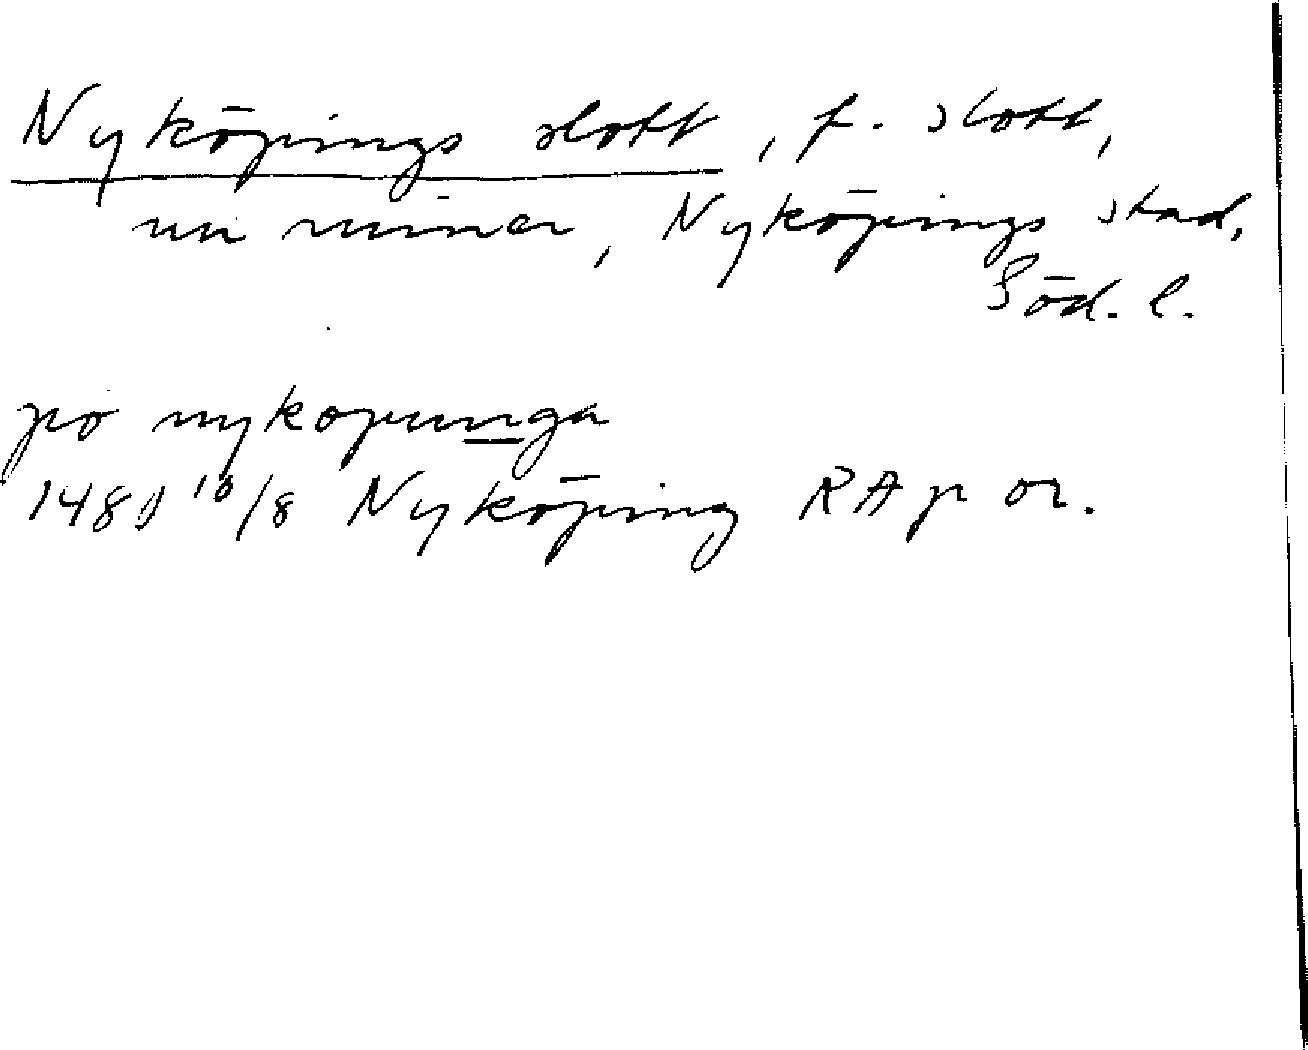 Nyköpings slott, f. slott,
nu ruiner, Nyköpings stad,
Söd. l.
po nykopunga
1481 10/8 Nyköping RAp or.